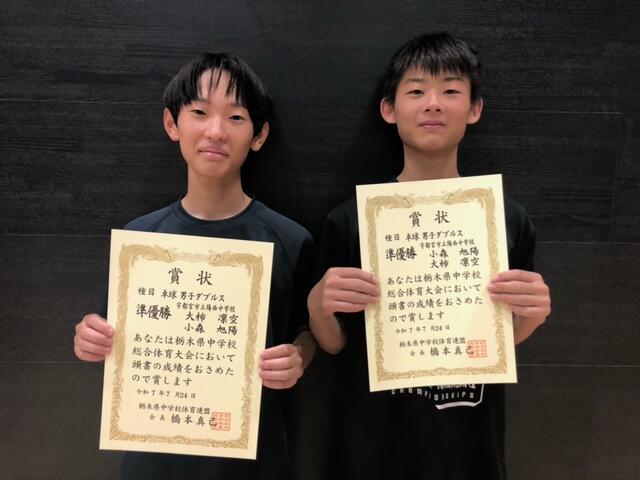 賞状
種目 卓球 男子ダブルス
宇都宮市立陽西中学校
準優勝 大柿 凛空
小森 旭陽
あなたは栃木県中学校
総合体育大会において
頭書の成績をおさめた
ので賞します
令和7年7月24日
栃木県中学校体育連盟
会長 橋本真己
賞状
種目 卓球 男子ダブルス
宇都宮市立陽西中学校
準優勝 小森 旭陽
大柿 凛空
あなたは栃木県中学校
総合体育大会において
頭書の成績をおさめた
ので賞します
令和7年7月24日
栃木県中学校体育連盟
会長 橋本真己
CHAMPIONSHIPS